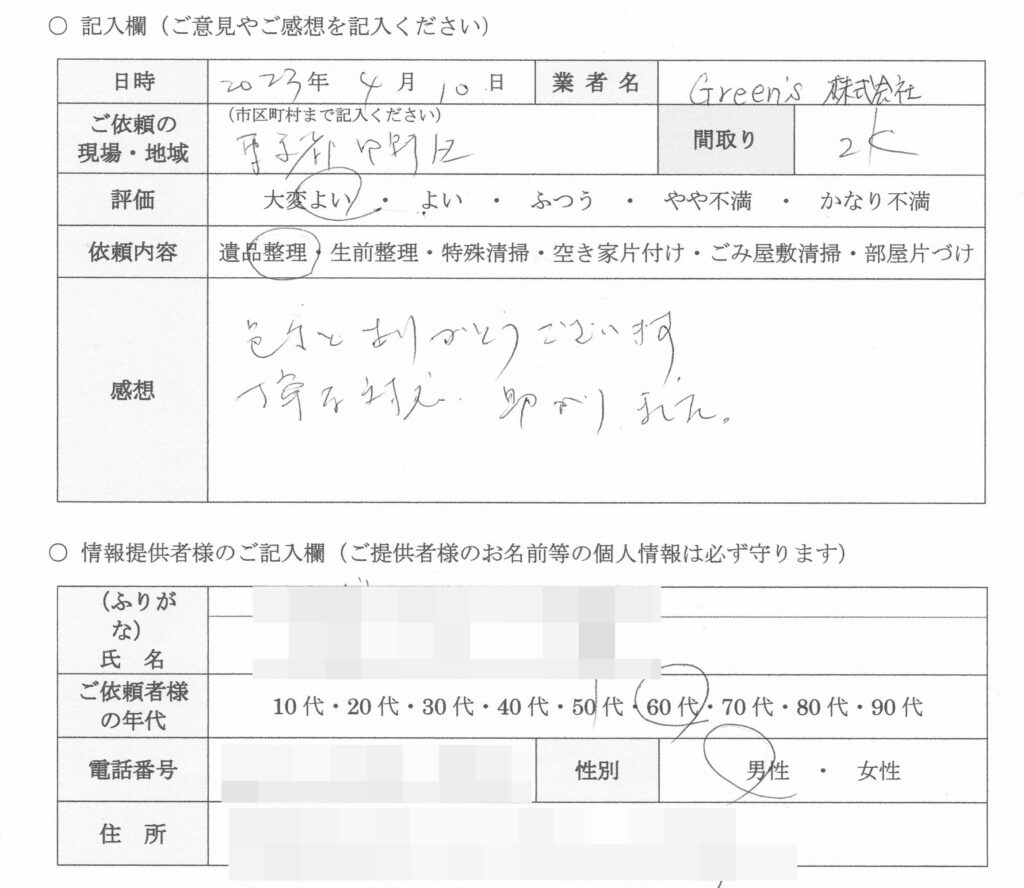 ○ 記入欄（ご意見やご感想を記入ください）
日時 2023年 4月 10日 業者名 Green's 株式会社
ご依頼の現場・地域 （市区町村まで記入ください） 間取り 2K
東京都中野区
評価 大変よい ・ よい ・ ふつう ・ やや不満 ・ かなり不満
依頼内容 遺品整理・生前整理・特殊清掃・空き家片付け・ごみ屋敷清掃・部屋片づけ
感想
色々とありがとうございます
丁寧な対応 助かりました。
○ 情報提供者様のご記入欄（ご提供者様のお名前等の個人情報は必ず守ります）
（ふりがな）
氏 名
ご依頼者様の年代 10代・20代・30代・40代・50代・60代・70代・80代・90代
電話番号 性別 男性 ・ 女性
住 所